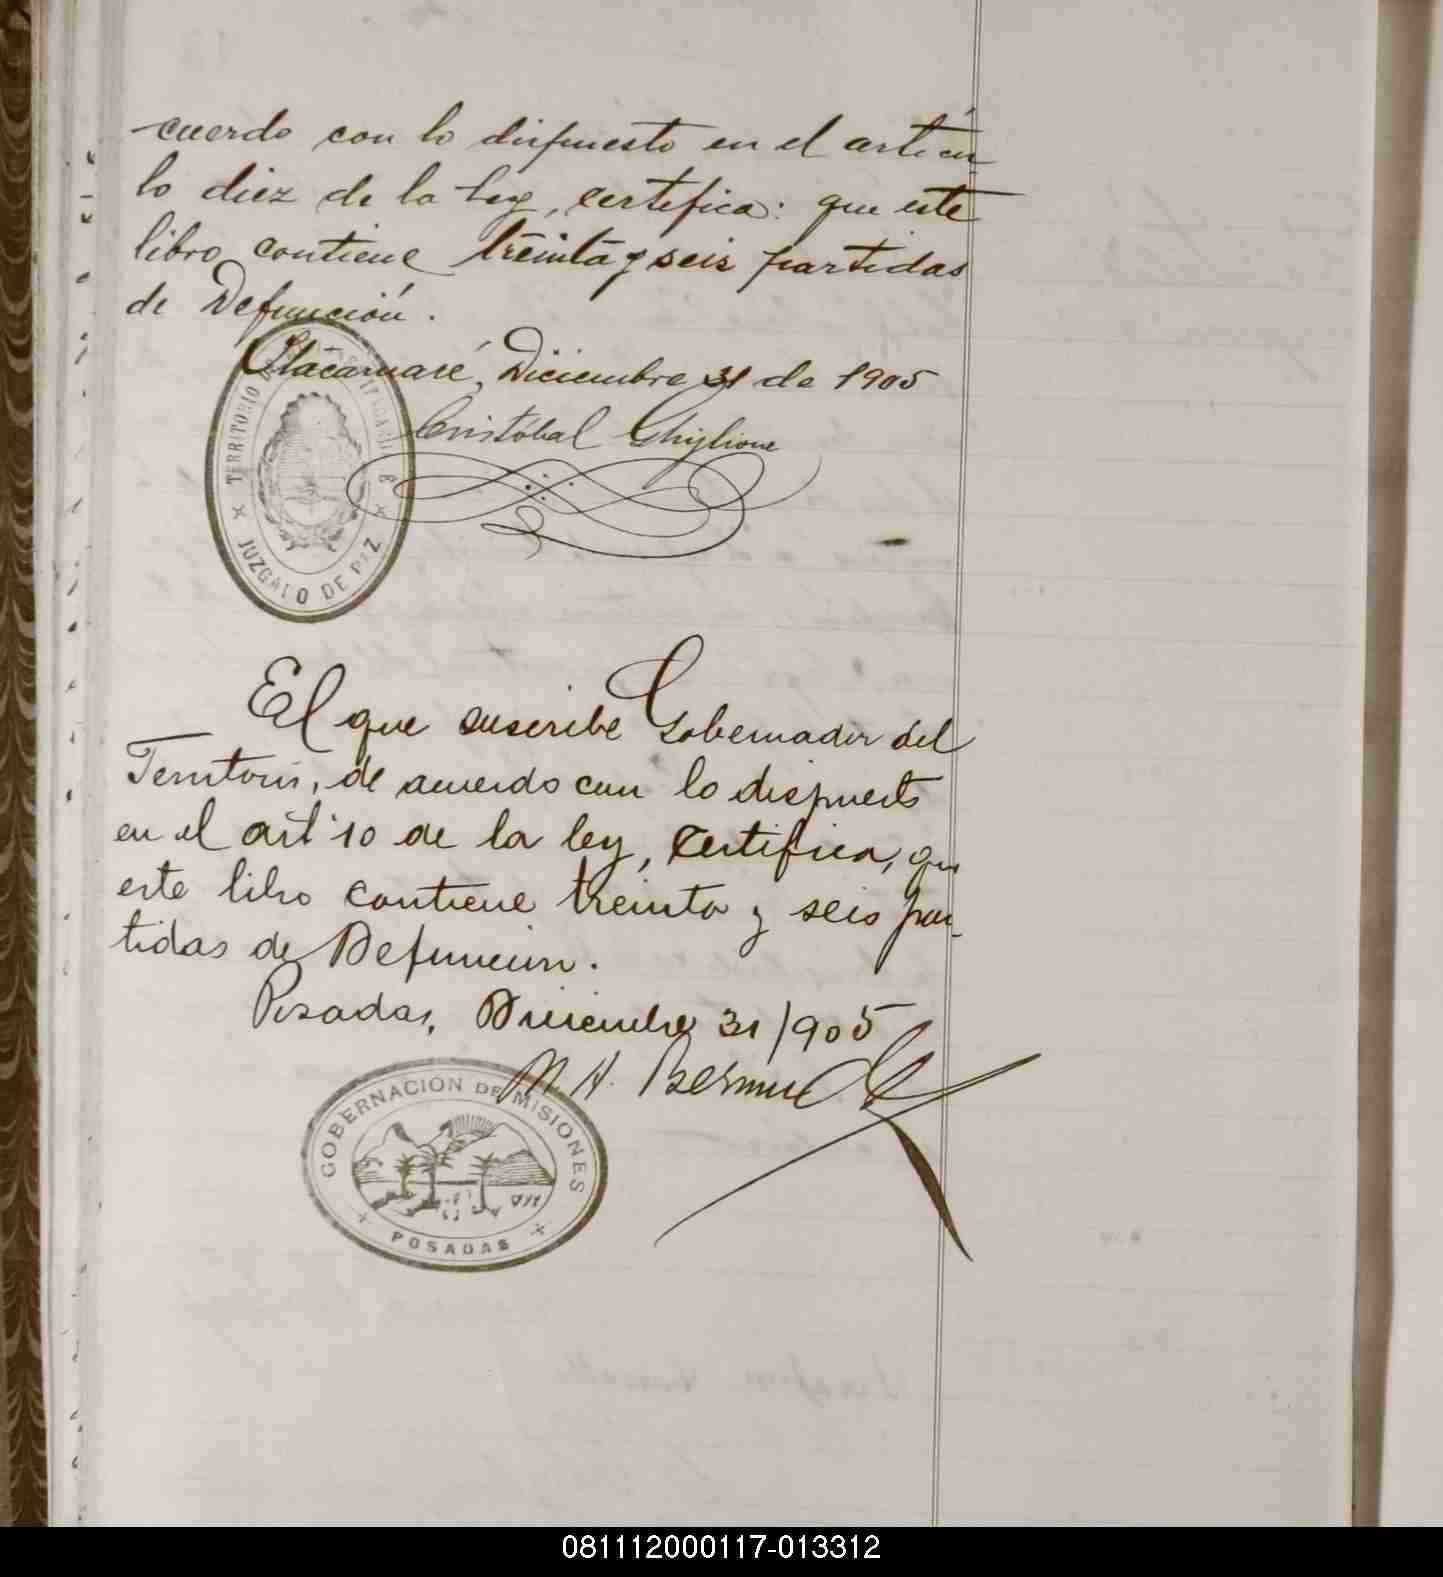 -cuerdo con lo dispuesto en el artícu-
lo diez de la Ley, certifica: que este
libro contiene treinta y seis partidas
de Defunción.
Itacaruaré, Diciembre 31 de 1905
Cristóbal Ghiglione
TERRITORIO
JUZGADO DE PAZ
El que suscribe Gobernador del
Territorio, de acuerdo con lo dispuesto
en el artº 10 de la ley, Certifica, que
este libro contiene treinta y seis par-
tidas de Defuncion.
Posadas, Diciembre 31/905
GOBERNACIÓN DE MISIONES
POSADAS
081112000117-013312